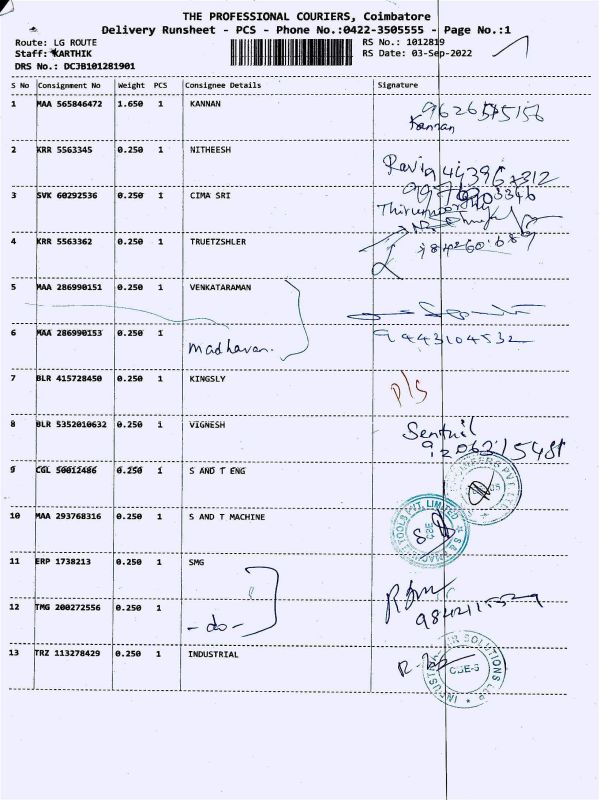 THE PROFESSIONAL COURIERS, Coimbatore
Delivery Runsheet - PCS - Phone No.:0422-3505555 - Page No.:1
Route: LG ROUTE RS No.: 1012819
Staff: KARTHIK RS Date: 03-Sep-2022
DRS No.: DCJB101281901
S No Consignment No Weight PCS Consignee Details Signature
1 MAA 565846472 1.650 1 KANNAN
Kannan
2 KRR 5563345 0.250 1 NITHEESH
Ravi
3 SVK 60292536 0.250 1 CIMA SRI
4 KRR 5563362 0.250 1 TRUETZSHLER
5 MAA 286990151 0.250 1 VENKATARAMAN
6 MAA 286990153 0.250 1
madhavan. 9443104532
7 BLR 415728450 0.250 1 KINGSLY
P/S
8 BLR 5352010632 0.250 1 VIGNESH
Senthil
9 CGL 50012486 0.250 1 S AND T ENG
10 MAA 293768316 0.250 1 S AND T MACHINE
TOOLS PVT. LIMITED
CBE
11 ERP 1738213 0.250 1 SMG
12 TMG 200272556 0.250 1
- do -
13 TRZ 113278429 0.250 1 INDUSTRIAL
SOLUTIONS LLP
CBE-6